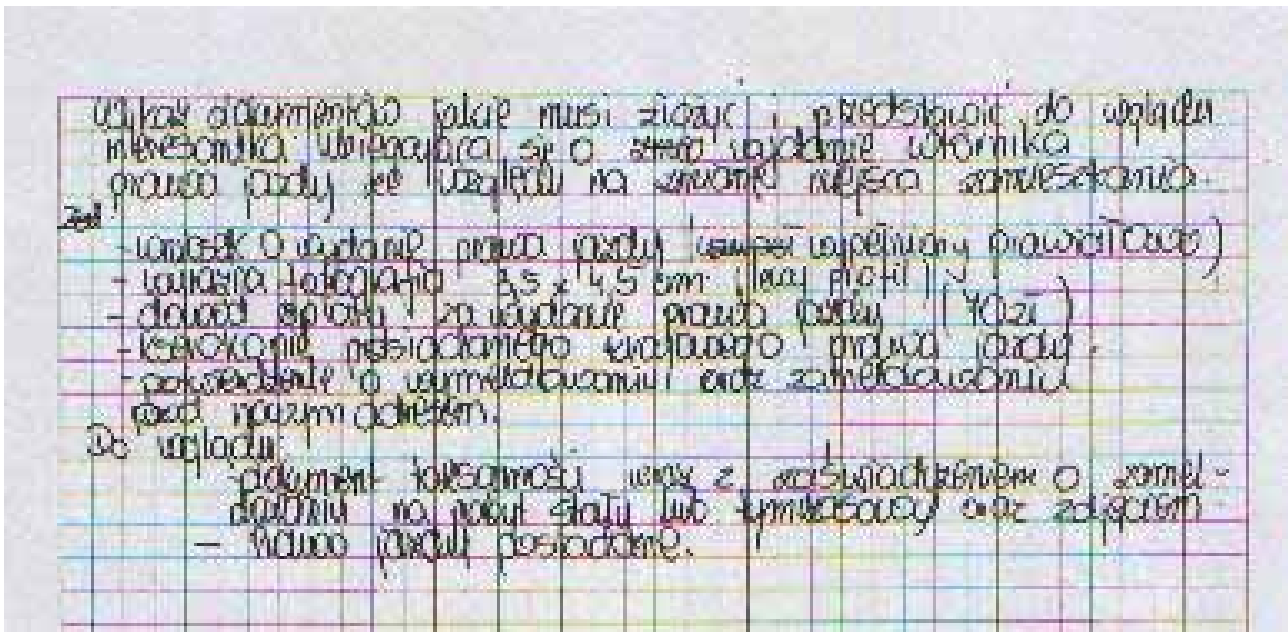 Wykaz dokumentów jakie musi złożyć i przedstawić do wglądu
interesantka ubiegająca się o wydanie wtórnika
prawa jazdy ze względu na zmianę miejsca zamieszkania.
- wniosek o wydanie prawa jazdy wypełniony prawidłowo)
- wyraźna fotografia 3,5 x 4,5 cm (lewy profil)
- dowód opłaty za wydanie prawa jazdy (70zł)
- kserokopię posiadanego krajowego prawa jazdy.
- o wymeldowaniu oraz zameldowaniu
pod nowym adresem.
Do wglądu:
- dokument tożsamości wraz z zaświadczeniem o zamel-
dowaniu na pobyt stały lub tymczasowy oraz zdjęciem
- Prawo jazdy posiadane.